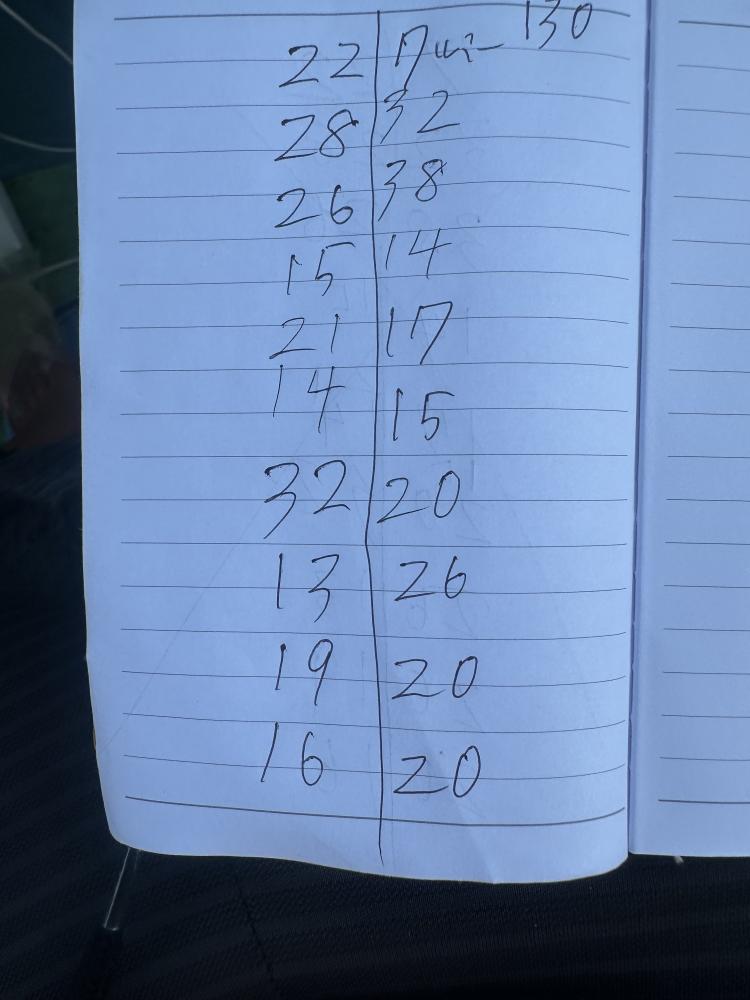 130
22
28 32
26 38
15 14
21 17
14 15
32 20
13 26
19 20
16 20